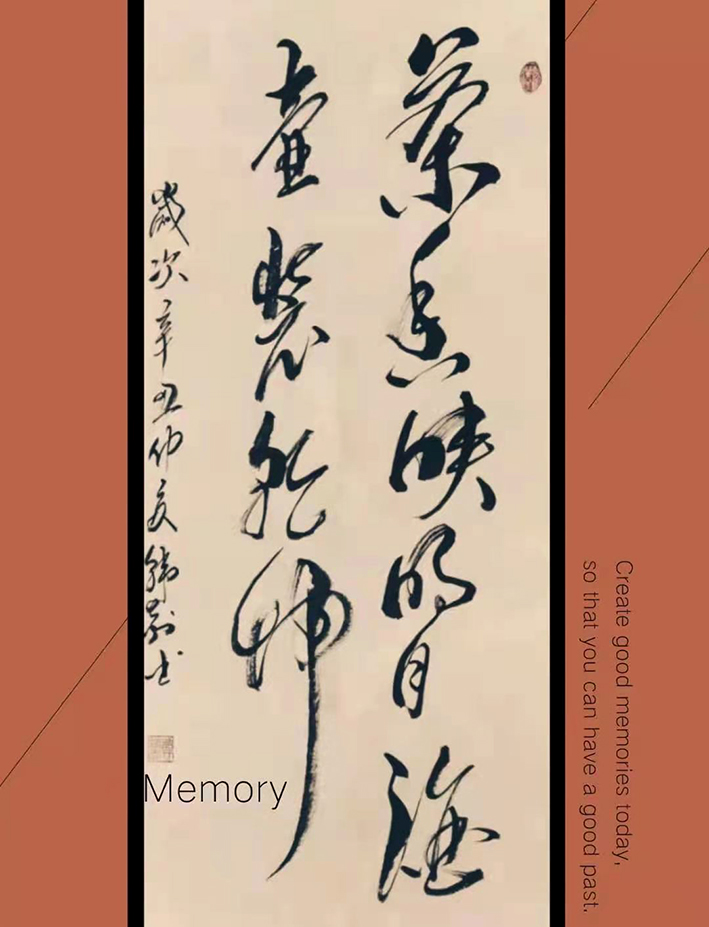 茶香映明月
壺裝乾坤
歲次辛丑仲夏
Memory
Create good memories today,
so that you can have a good past.